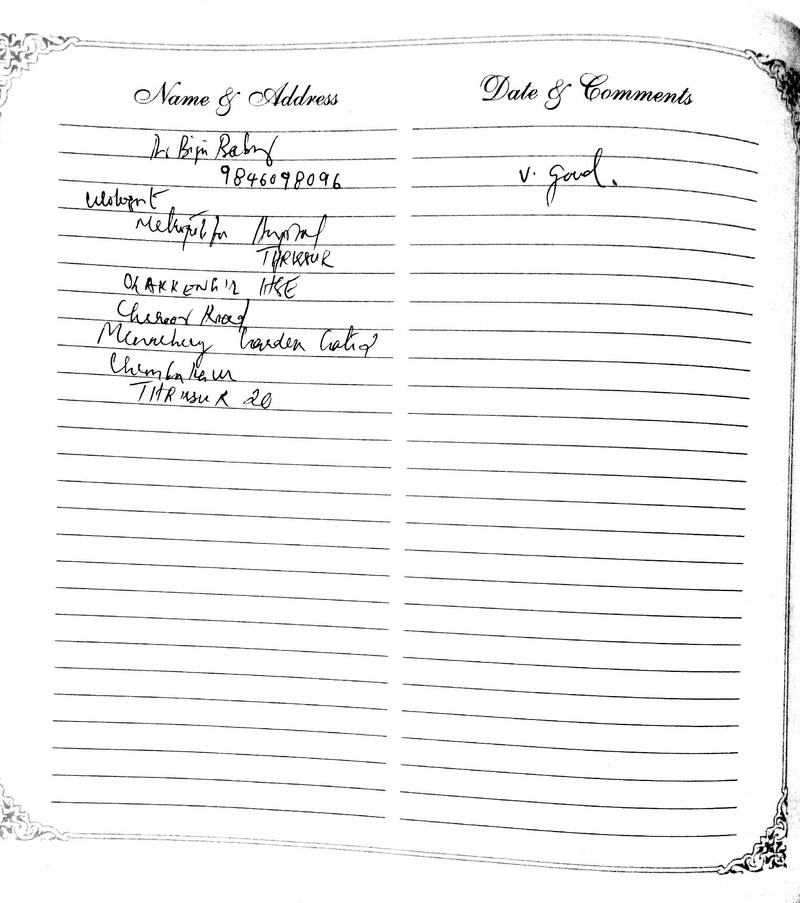 Name & Address
Date & Comments
Dr Biju Baby
9846098096
v. good.
Urologist
Metropolitan Hospital
THRISSUR
HSE
Cheroor Road
Mannathury Garden
Chembukavu
THRISSUR 20